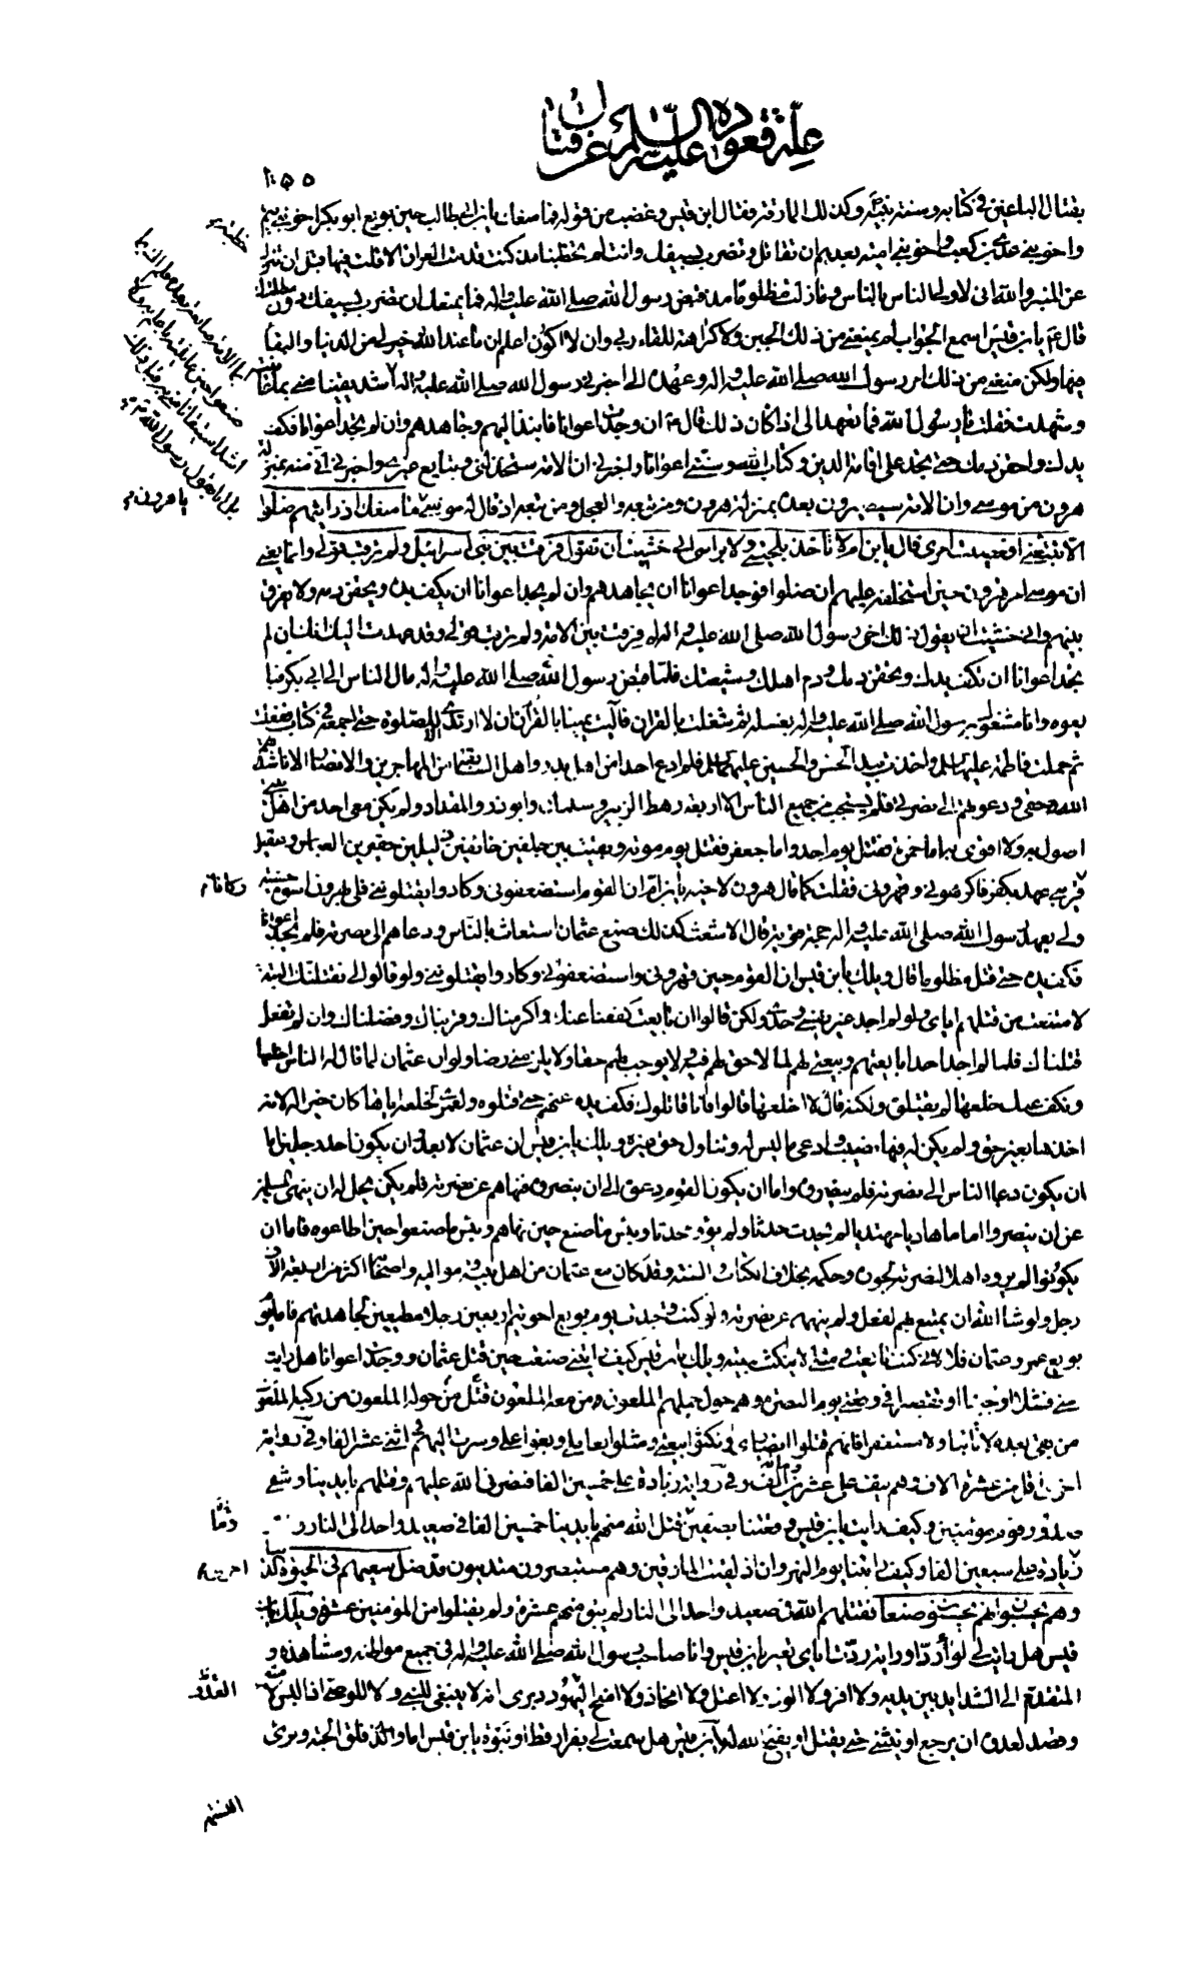 علة قعوده عليه السلم عن قتال
بقتال الباغين في كتابه وسنة نبيه وكذلك المارقة فقال ابن قيس وغضب من قوله فما منعك يابن ابي طالب حين بويع ابو بكر اخو بني تيم
واخو بني عدي بن كعب واخو بني امية بعدهم ان تقاتل وتضرب بسيفك وانت لم تخطبنا مذ كنت قدمت العراق الا قلت فيها قبل ان تنزل
عن المنبر والله اني لاولى الناس بالناس وما زلت مظلوما مذ قبض رسول الله صلى الله عليه واله فما يمنعك ان تضرب بسيفك دون مظلمتك
قال يابن قيس اسمع الجواب لم يمنعني من ذلك الجبن ولا كراهة للقاء ربي وان لا اكون اعلم ان ما عند الله خير لي من الدنيا والبقأ
فيها ولكن منعني من ذلك امر رسول الله صلى الله عليه واله وعهده الي اخبرني رسول الله صلى الله عليه واله
وشهدت فقلت يا رسول الله فما تعهد الي اذا كان ذلك قال ان وجدت اعوانا فانبذ اليهم وجاهدهم وان لم تجد اعوانا فكف
يدك واحقن دمك حتى تجد على اقامة الدين وكتاب الله وسنتي اعوانا واخبرني ان الامة ستخذلني وتبايع غيري واخبرني اني منه بمنزلة
هرون من موسى وان الامة سيصيرون بعده بمنزلة هرون ومن تبعه والعجل ومن تبعه اذ قال له موسى ما منعك اذ رايتهم ضلوا
الا تتبعن افعصيت امري قال يابن ام لا تاخذ بلحيتي ولا براسي اني خشيت ان تقول فرقت بين بني اسرائيل ولم ترقب قولي وانما يعني
ان موسى امر هرون حين استخلفه عليهم ان ضلوا فوجد اعوانا ان يجاهدهم وان لم يجد اعوانا ان يكف يده ويحقن دمه ولا يفرق
بينهم واني خشيت ان يقول ذلك اخي رسول الله صلى الله عليه واله لم فرقت بين الامة ولم ترقب قولي وقد عهدت اليك انك ان لم
تجد اعوانا ان تكف يدك وتحقن دمك ودم اهلك وشيعتك فلما قبض رسول الله صلى الله عليه واله مال الناس الى ابي بكر فبا
يعوه وانا مشغول برسول الله صلى الله عليه واله بغسله ثم شغلت بالقران فآليت يمينا بالقرآن ان لا ارتدي الا للصلوة حتى اجمعه في كتاب ففعلت
ثم حملت فاطمة عليها السلم واخذت بيد الحسن والحسين عليهما السلم فلم ادع احدا من اهل بدر واهل السابقة من المهاجرين والانصار الا ناشدتهم
الله وحقي ودعوتهم الى نصرتي فلم يستجب من جميع الناس الا اربعة رهط الزبير وسلمان وابوذر والمقداد ولم يكن معي احد من اهل بيتي
اصول به ولا اقوى به اما حمزة فقتل يوم احد واما جعفر فقتل يوم موتة وبقيت بين جلفين خائفين ذليلين حقيرين العباس وعقيل
قريبي عهد بكفر فاكرهوني وقهروني فقلت كما قال هرون لاخيه يابن ام ان القوم استضعفوني وكادوا يقتلونني فلي بهرون اسوة حسنة
ولي بعهد رسول الله صلى الله عليه واله حجة قوية قال الاشعث كذلك صنع عثمان استغاث بالناس ودعاهم الى نصرته فلم يجد اعوانا
فكف يده حتى قتل مظلوما قال ويلك يابن قيس ان القوم حين قهروني واستضعفوني وكادوا يقتلونني ولو قالوا لي نقتلنك البتة
لامتنعت من قتلهم اياي ولو لم اجد غير نفسي وحدي ولكن قالوا ان بايعت كففنا عنك واكرمناك وقربناك وفضلناك وان لم تفعل
قتلناك فلما لم اجد احدا بايعتهم وبيعتي لهم لما لا حق لهم فيه لا يوجب لهم حقا ولا يلزمني رضا ولو ان عثمان لما قال له الناس اخلعها
ونكف عنك خلعها لم يقتلوه ولكنه قال لا اخلعها قالوا فانا قاتلوك فكف يده عنهم حتى قتلوه ولعمري لخلعه اياها كان خيرا له لانه
اخذها بغير حق ولم يكن له فيها نصيب وادعى ما ليس له وتناول حق غيره ويلك يابن قيس ان عثمان لا يعدو ان يكون احد رجلين اما
ان يكون دعا الناس الى نصرته فلم ينصروه واما ان يكون القوم دعوه الى ان ينصروه فنهاهم عن نصرته فلم يكن يحل له ان ينهى المسلمين
عن ان ينصروا اماما هاديا مهتديا لم يحدث حدثا ولم يؤو محدثا وبئس ما صنع حين نهاهم وبئس ما صنعوا حين اطاعوه فاما ان
يكونوا لم يروه اهلا لنصرته لجوره وحكمه بخلاف الكتاب والسنة وقد كان مع عثمان من اهل بيته ومواليه واصحابه اكثر من اربعة الاف
رجل ولو شاء الله ان يمتنع بهم لفعل ولم ينههم عن نصرته ولو كنت وجدت يوم بويع اخو تيم اربعين رجلا مطيعين لجاهدتهم فاما يوم
بويع عمر وعثمان فلا لاني كنت بايعت ومثلي لا ينكث بيعته ويلك يابن قيس كيف رايتني صنعت حين قتل عثمان ووجدت اعوانا هل رايت
مني فشلا او جبنا او تقصيرا في وقعتي يوم البصرة وهم حول جملهم الملعون ومن معه الملعون من قتل حوله الملعون من ركبه الملعون
من بقي بعده لا تائبا ولا مستغفرا فانهم قتلوا انصاري ونكثوا بيعتي ومثلوا بعاملي وبغوا علي وسرت اليهم في اثني عشر الفا وفي رواية
اخرى اقل من عشرة الاف وهم نيف على عشرين ومائة الف وفي رواية زيادة على خمسين الفا فنصرني الله عليهم وقتلهم بايدينا وشفى
صدور قوم مؤمنين وكيف رايت يابن قيس وقعتنا بصفين قتل الله منهم بايدينا خمسين الفا في صعيد واحد الى النار
زيادة على سبعين الفا وكيف رايتنا يوم النهروان اذ لقيت المارقين وهم مستبصرون متدينون قد ضل سعيهم في الحيوة الدنيا
وهم يحسبون انهم يحسنون صنعا فقتلهم الله في صعيد واحد الى النار لم يبق منهم عشرة ولم يقتلوا من المؤمنين عشرة ويلك يابن
قيس هل رايت لي لواء رد او راية ردت اياي تعير يابن قيس وانا صاحب رسول الله صلى الله عليه واله في جميع مواطنه ومشاهده و
المتقدم الى الشدايد بين يديه ولا افر ولا ولا اعتل ولا انحاز ولا امنح اليهود دبري انه لا ينبغي للنبي ولا للوصي اذا لبس لامته
وقصد لعدوه ان يرجع او ينثني حتى يقتل او يفتح الله له يابن قيس هل سمعت لي بفرار قط او نبوة يابن قيس اما والذي فلق الحبة وبرئ
النسمة